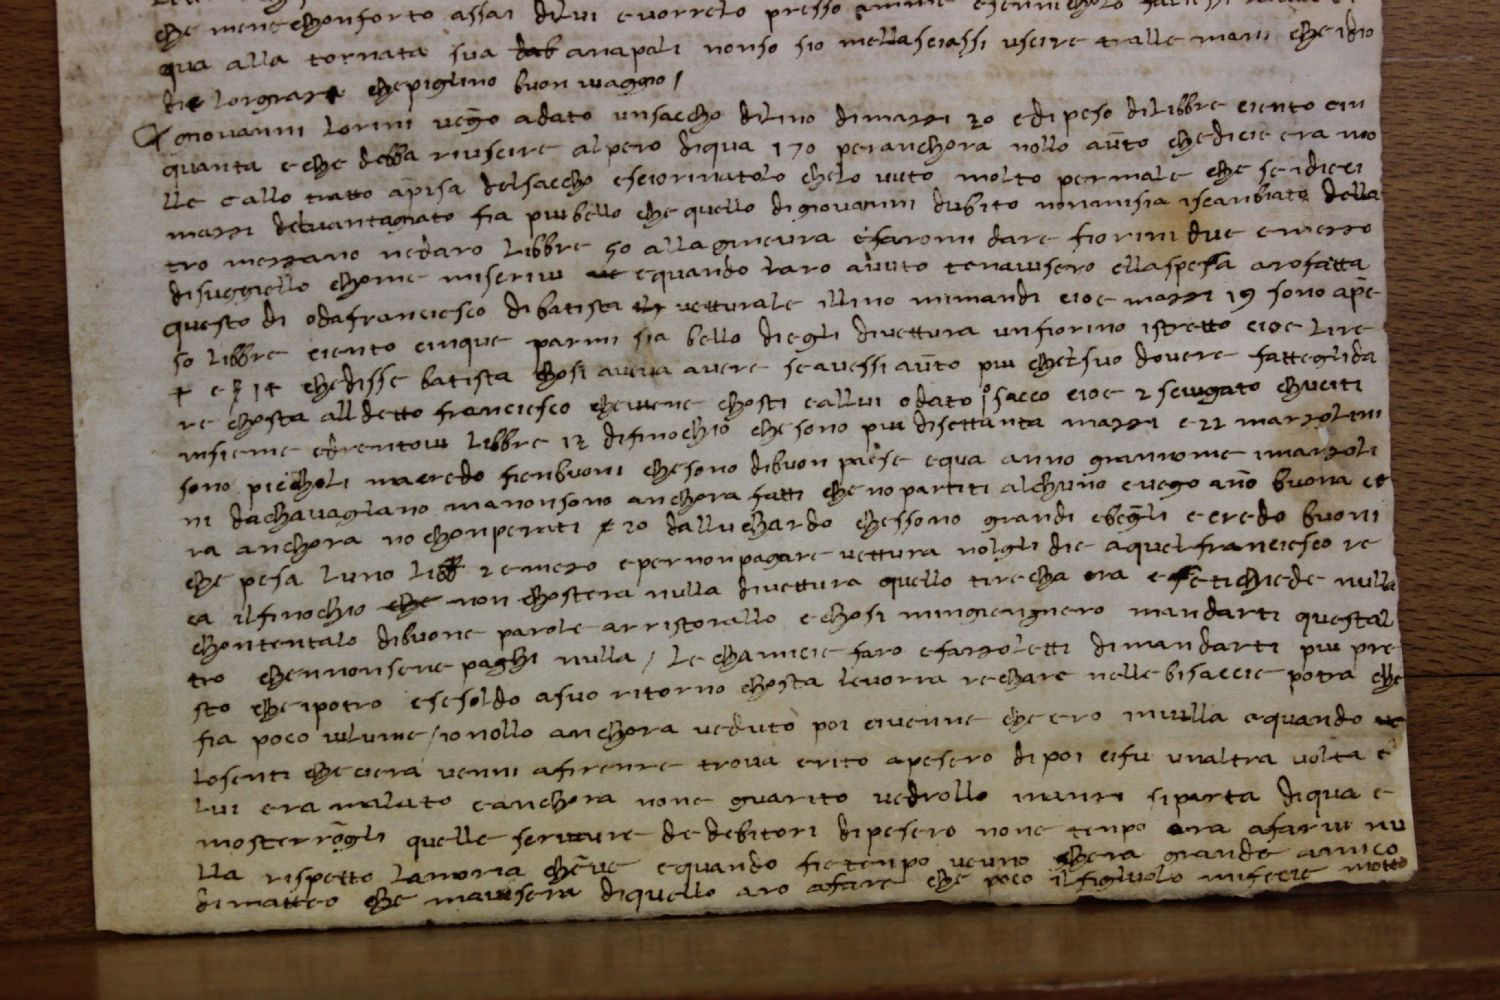 che mene chonforto assai di lui e vorrelo presso amme
qua alla tornata sua anapoli nonso sio mellasciassi uscire tralle mani che idio
die lorgrazia chepiglino buon viaggio /
giovanni lorini vegio adato unsaccho dilino dimazzi 20 e di peso dilibbre ciento cin
quanta e che debba riuscire alpero diqua 170 peranchora nollo auto chedicie era mo
lle e allo tratto apisa delsaccho esciorinatolo chelo vuto molto permale che seidieci
mazzi detuantagiato fia piubello che quello di giovanni dubito nonmisia iscanbiato della
tro mezzano nedaro libbre 50 allaginevra efaromi dare fiorini due emezzo
disuggiello chome miserivi equando laro auuto tenauisero ellaspesa arofatta
questo di odafranciescho dibatista vetturale illino mimandi cioe mazzi 19 sono ape
so libbre ciento cinque parmi sia bello diegli divettura unfiorino istretto cioe lire
4 e 14 chedisse batista chosi aveva avere seavessi auto piu chelsuo dovere fatteglida
re chosta alldetto franciescho cheviene chosti eallui odato 1° sacco cioe 2 sciugato chuciti
insieme edrentovi libbre 12 difinochio che sono piu disettanta mazzi e 22 marzolini
sono piccholi macredo fienbuoni chesono dibuon paese equa anno grannome imarzoli
ni dachavagliano manonsono anchora fatti che no partiti alchuno evego ano buona ce
ra anchora no chonperati 20 dallucchardo chessono grandi ebegli ecredo buoni
che pesa luno libb 2 emezo epernonpagare vettura nolgli die aquelfranciescho re
ca ilfinochio non chostera nulla divettura quello tirecha ora esetichiede nulla
chontentalo dibuone parole arristorallo echosi mingiengnero mandarti questal
tro chennonsene paghi nulla / le chamicie faro efazoletti dimandarti piu pre
sto cheipotro esesoldo asuo ritorno chosta levorra rechare nellebisaccie potra che
fia poco vilume / io nollo anchora veduto poi civenne chero invilla equando
losenti checera venni afirenze trova erito apesero dipoi cifu unaltra volta e
lui era malato eanchora none guarito vedrollo inanzi siparta diqua e
mosterrogli quelle seruture de debitori dipesero none tenpo ora afarvi nu
lla rispetto lamoria cheve equando fietenpo veuno chera grande amico
dimatteo che mauisera diquello aro afare che poco ilfigliuolo mifecie motto